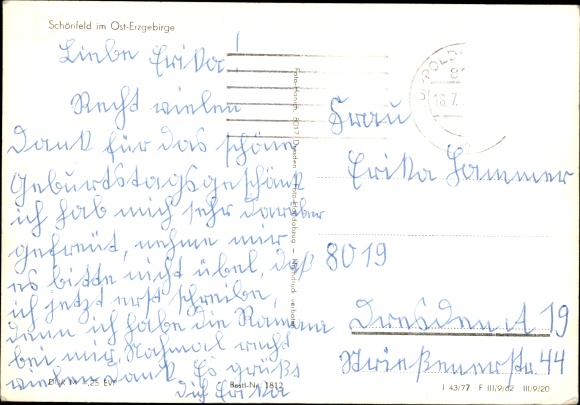 Schönfeld im Ost-Erzgebirge
Liebe Erika!
Recht vielen
Dank für das schöne
Geburtstagsgeschänk
ich hab mich sehr darüber
gefreut, nehme mir
es bitte nicht übel, daß
ich jetzt erst schreibe,
denn ich habe die Ramona
bei mir. Nochmal recht
vielen Dank Es grüßt
dich Erika
Frau
Erika Hammer
8019
Dresden A 19
Striesenerstr. 44
18.7.
Bestl.-Nr. 1812
I 43/77 F III/9/62 III/9/20